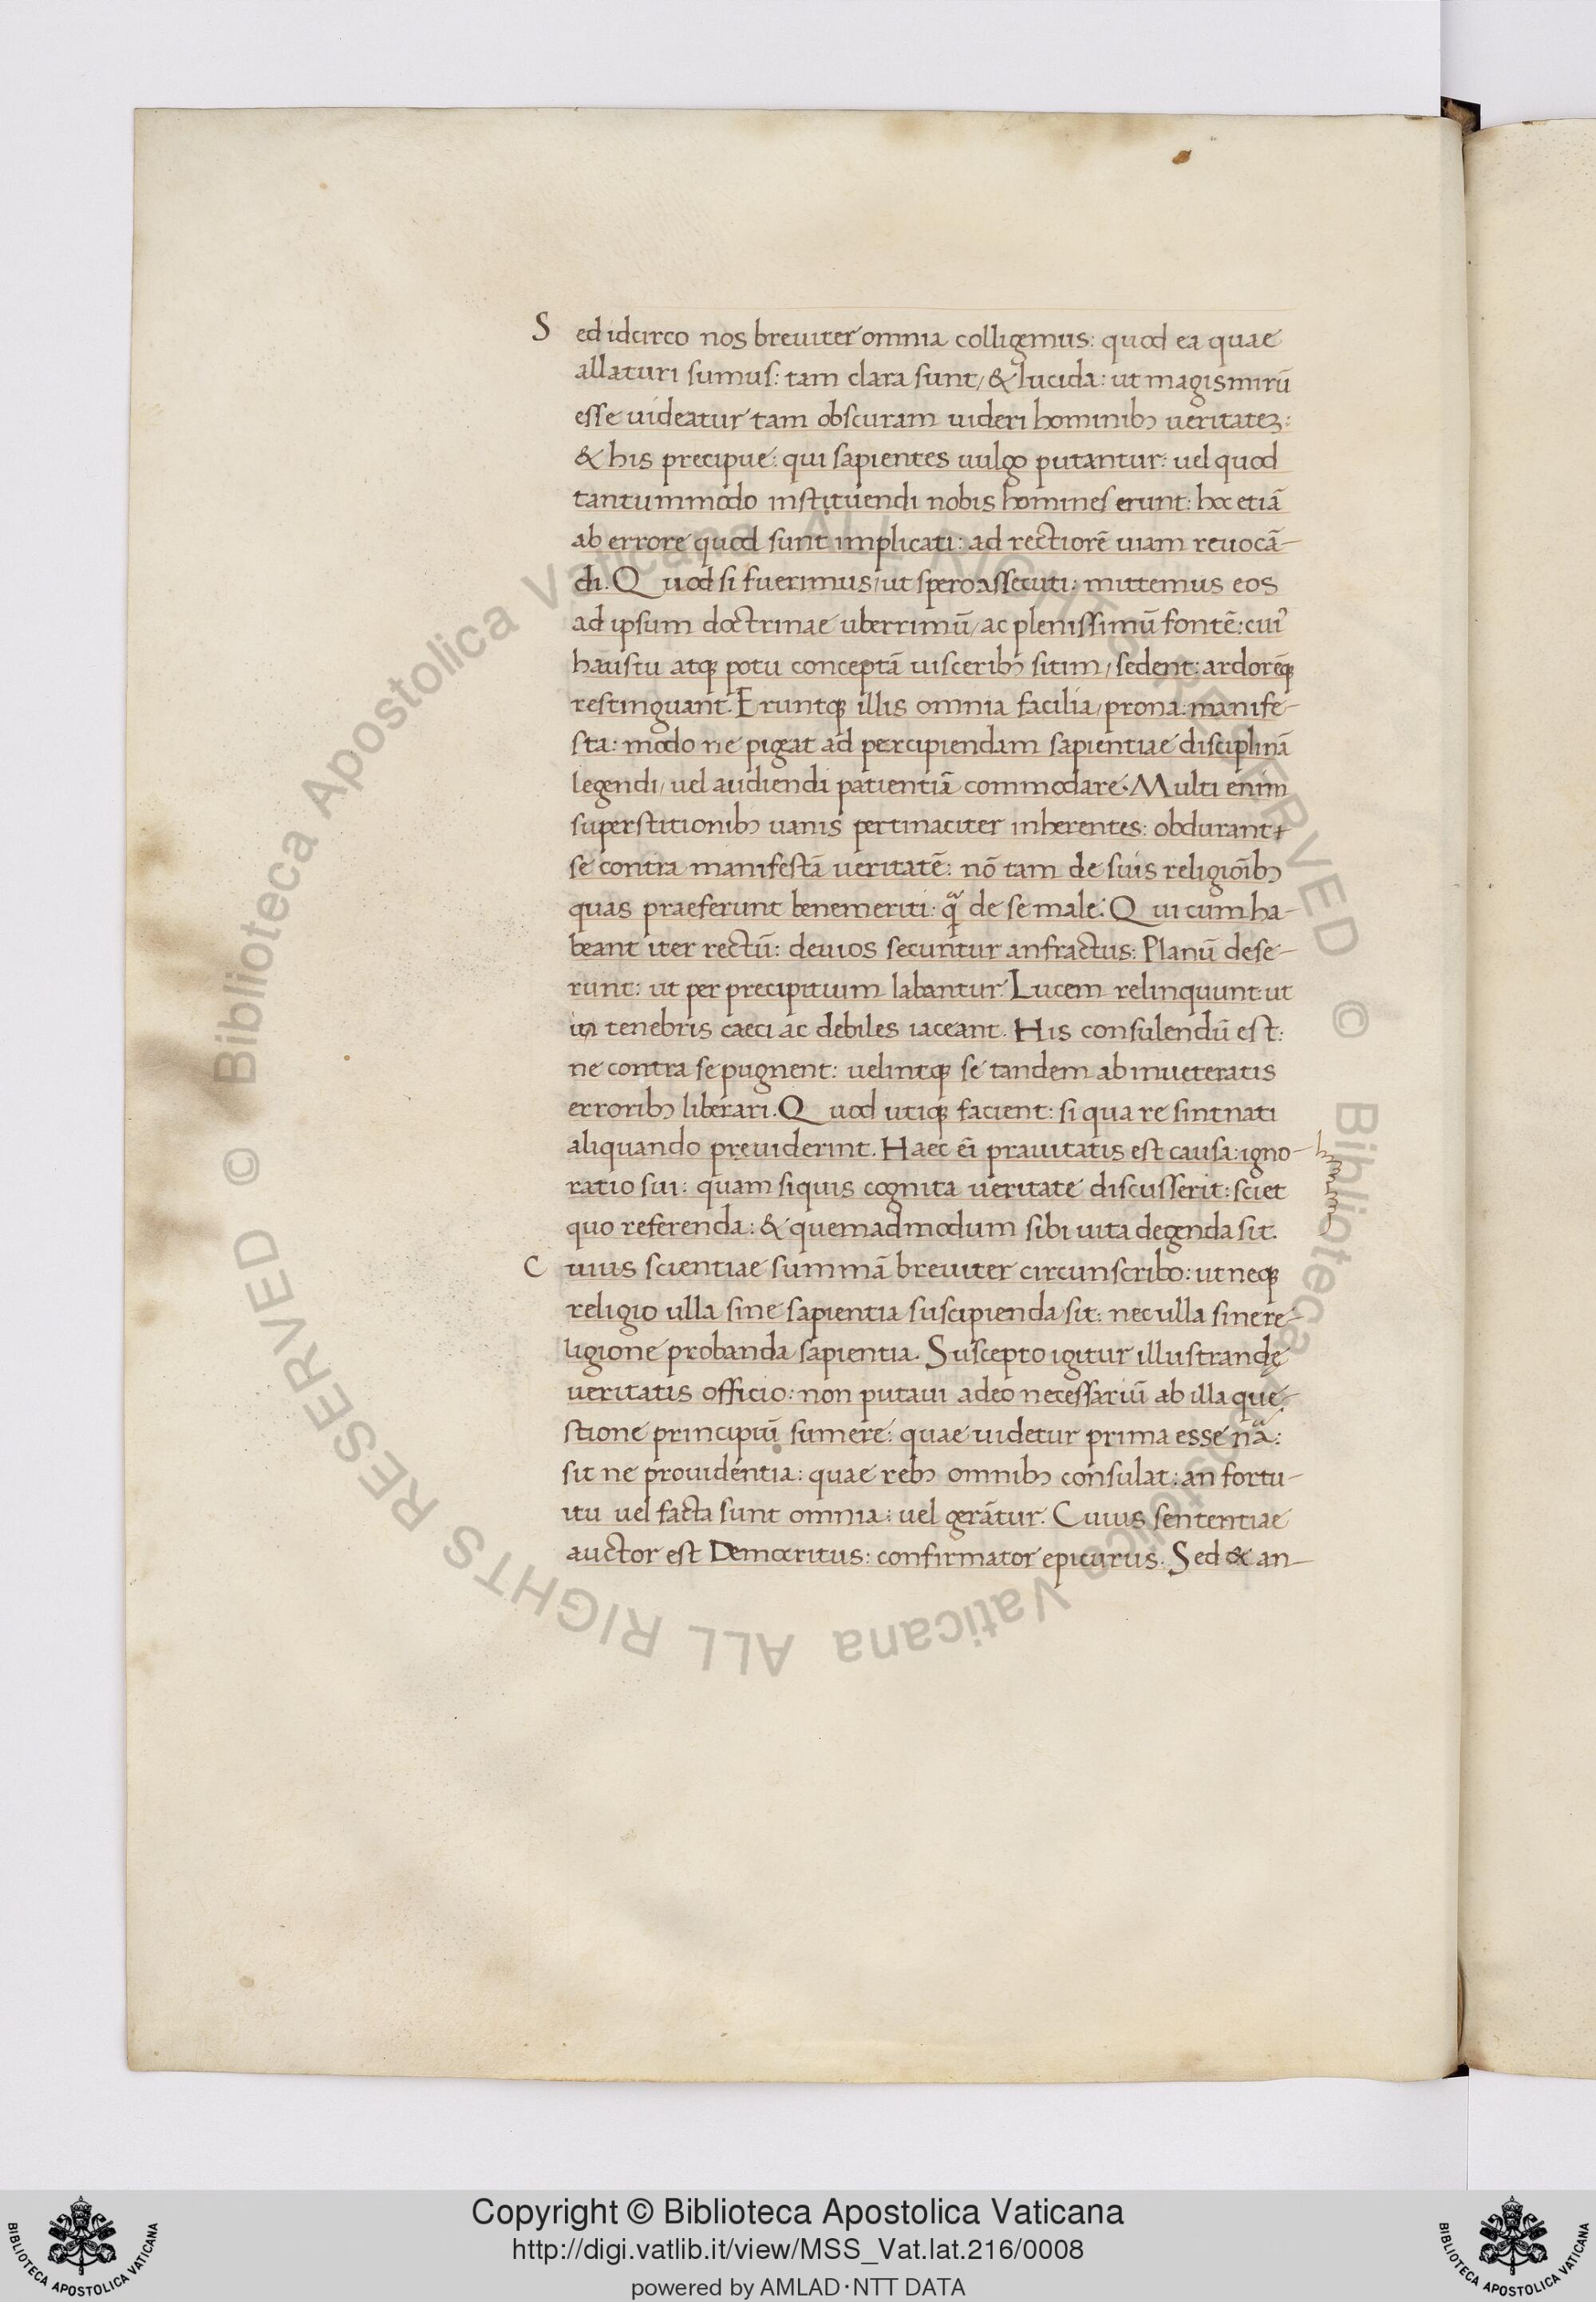 Sed idcirco nos breuiter omnia colligemus: quod ea quae
allaturi sumus: tam clara sunt/ & lucida: ut magis mirū
esse uideatur tam obscuram uideri hominibꝫ ueritatēꝫ:
& his precipue: qui sapientes uulgo putantur: uel quod
tantummodo instituendi nobis homines erunt: hoc etiā
ab errore quod sunt implicati: ad rectiorē uiam reuocā-
di. Quod si fuerimus/ ut spero assecuti: mittemus eos
ad ipsum doctrinae uberrimū/ ac plenissimū fontē: cuiꝰ
haustu atqꝫ potu conceptā uisceribꝫ sitim/ sedent: ardorēqꝫ
restinguant. Eruntqꝫ illis omnia facilia/ prona: manife-
sta: modo ne pigeat ad percipiendam sapientiae disciplinā
legendi/ uel audiendi patientiā commodare. Multi enim
superstitionibꝫ uanis pertinaciter inherentes: obdurant
se contra manifestā ueritatē: nō tam de suis religiōibꝫ
quas praeferunt benemeriti: q̄ de se male. Qui cum ha-
beant iter rectū: deuios secuntur anfractus: Planū dese-
runt: ut per precipitium labantur. Lucem relinquunt: ut
in tenebris caeci ac debiles iaceant. His consulendū est:
ne contra se pugnent: uelintqꝫ se tandem ab inueteratis
erroribꝫ liberari. Quod utiqꝫ facient: si qua re sint nati
aliquando preuiderint. Haec ēi prauitatis est causa: igno-
ratio sui: quam siquis cognita ueritate discusserit: sciet
quo referenda: & quemadmodum sibi uita degenda sit.
Cuius scientiae summā breuiter circunscribo: ut neqꝫ
religio ulla sine sapientia suscipienda sit: nec ulla sine re-
ligione probanda sapientia. Suscepto igitur illustrandę
ueritatis officio: non putaui adeo necessariū ab illa que-
stione principiū sumere: quae uidetur prima esse nā:
sit ne prouidentia: quae rebꝫ omnibꝫ consulat: an fortu-
itu uel facta sunt omnia: uel gerātur. Cuius sententiae
auctor est Democritus: confirmator epicurus. Sed & an-
© Biblioteca Apostolica Vaticana ALL RIGHTS RESERVED
© Biblioteca Apostolica Vaticana ALL RIGHTS RESERVED
Copyright © Biblioteca Apostolica Vaticana
http://digi.vatlib.it/view/MSS_Vat.lat.216/0008
powered by AMLAD·NTT DATA
BIBLIOTECA APOSTOLICA VATICANA
BIBLIOTECA APOSTOLICA VATICANA